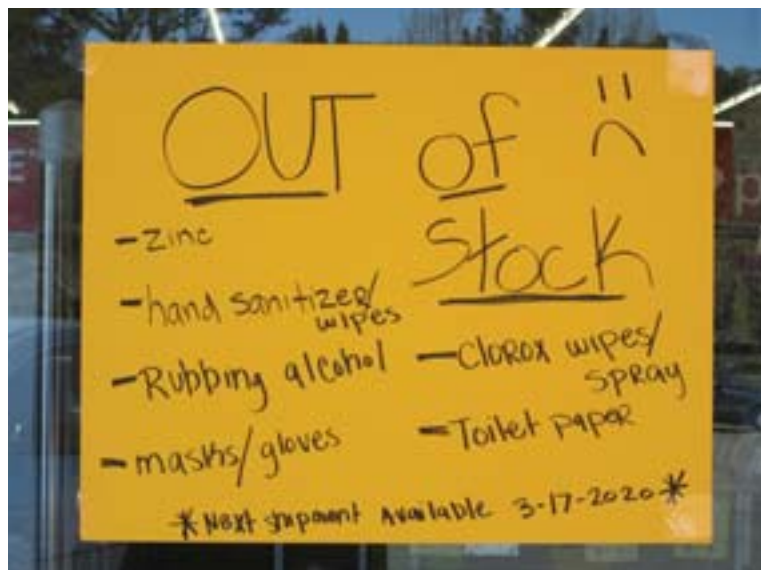 OUT of
Stock
- Zinc
- hand sanitizer/
wipes
- Rubbing alcohol
- masks/gloves
- Clorox wipes/
spray
- Toilet paper
* Next shipment Available 3-17-2020 *